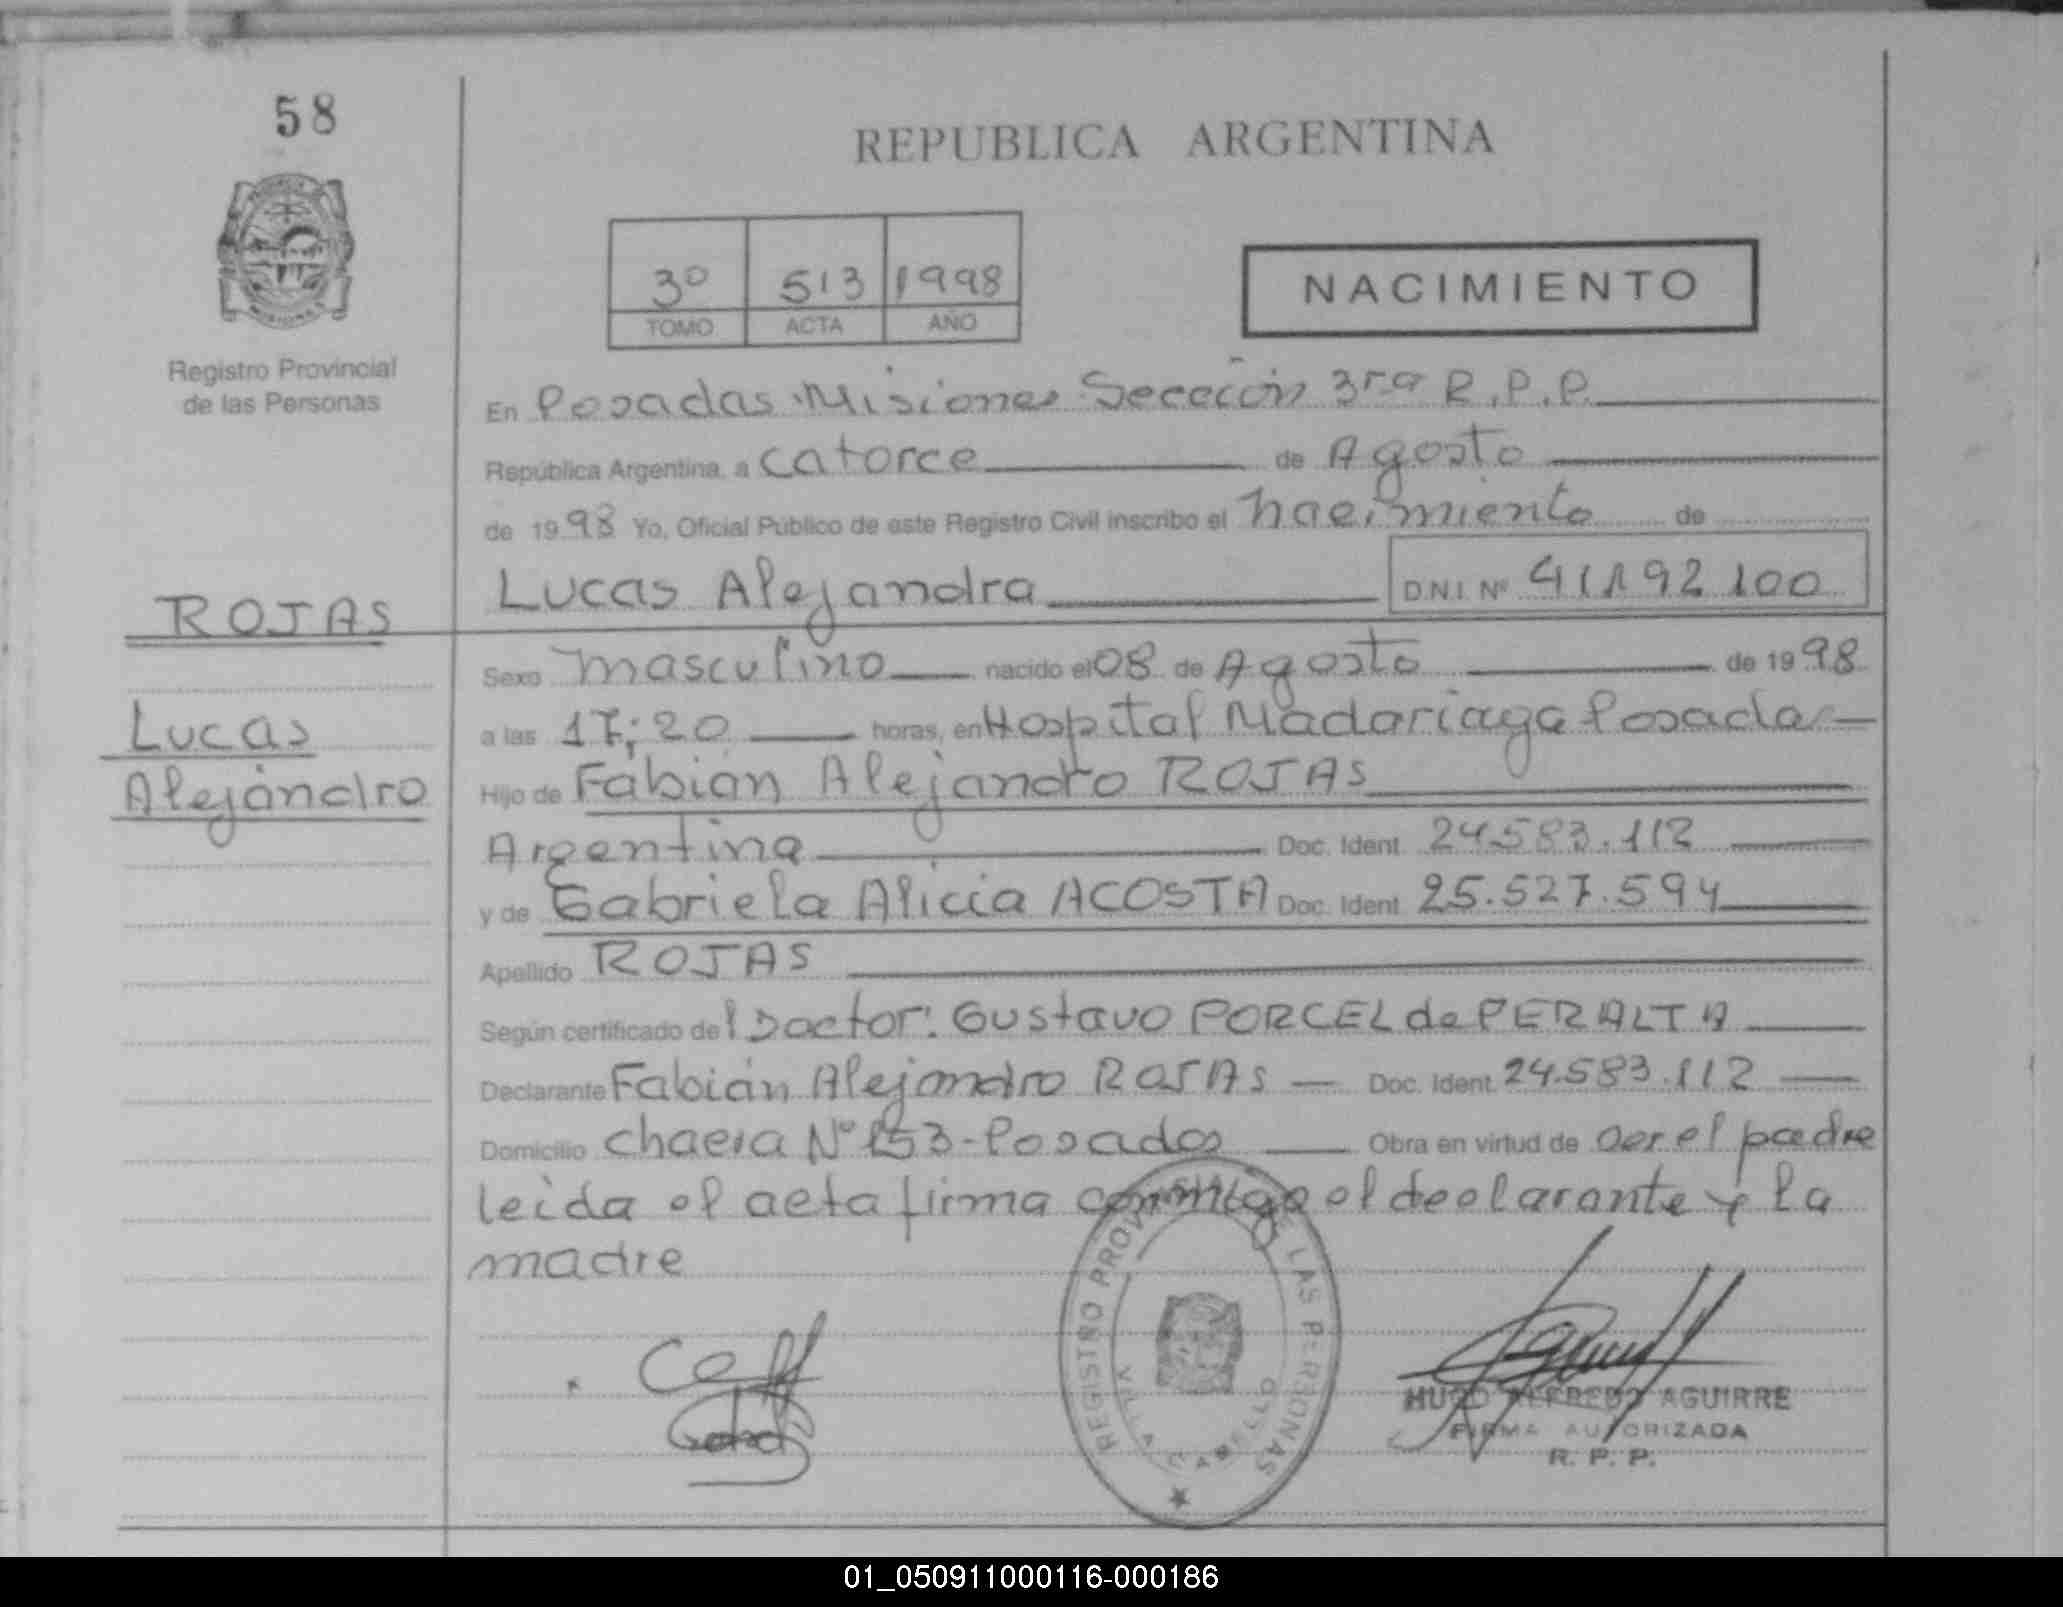 58
REPUBLICA ARGENTINA
3º 513 1998
TOMO ACTA AÑO
NACIMIENTO
Registro Provincial
de las Personas
En Posadas Misiones Sección 3ra R.P.P.
República Argentina, a catorce de Agosto
de 1998 Yo, Oficial Público de este Registro Civil inscribo el nacimiento de
Lucas Alejandra D.N.I. Nº 41192100
ROJAS
Lucas
Alejandro
Sexo masculino nacido el 08 de Agosto de 1998
a las 17;20 horas, en Hospital Madariaga Posadas
Hijo de Fabián Alejandro ROJAS
Argentina Doc. Ident. 24.583.112
y de Gabriela Alicia ACOSTA Doc. Ident. 25.527.594
Apellido ROJAS
Según certificado del Doctor: Gustavo PORCEL de PERALTA
Declarante Fabián Alejandro ROJAS Doc. Ident. 24.583.112
Domicilio chacra Nº 153-Posadas Obra en virtud de ser el padre
leida el acta firma conmigo el declarante y la
madre
REGISTRO PROVINCIAL DE LAS PERSONAS
VILLA CABELLO
HUGO ALFREDO AGUIRRE
FIRMA AUTORIZADA
R. P. P.
01_050911000116-000186